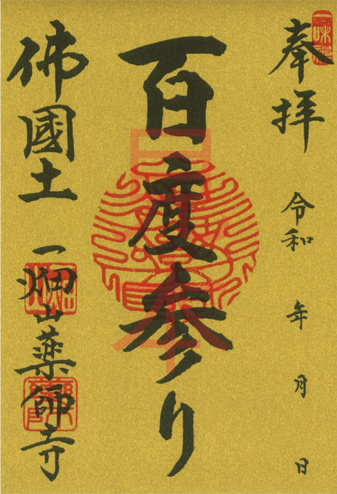 奉拝
令和 年 月 日
百度参り
佛國土
一畑山薬師寺